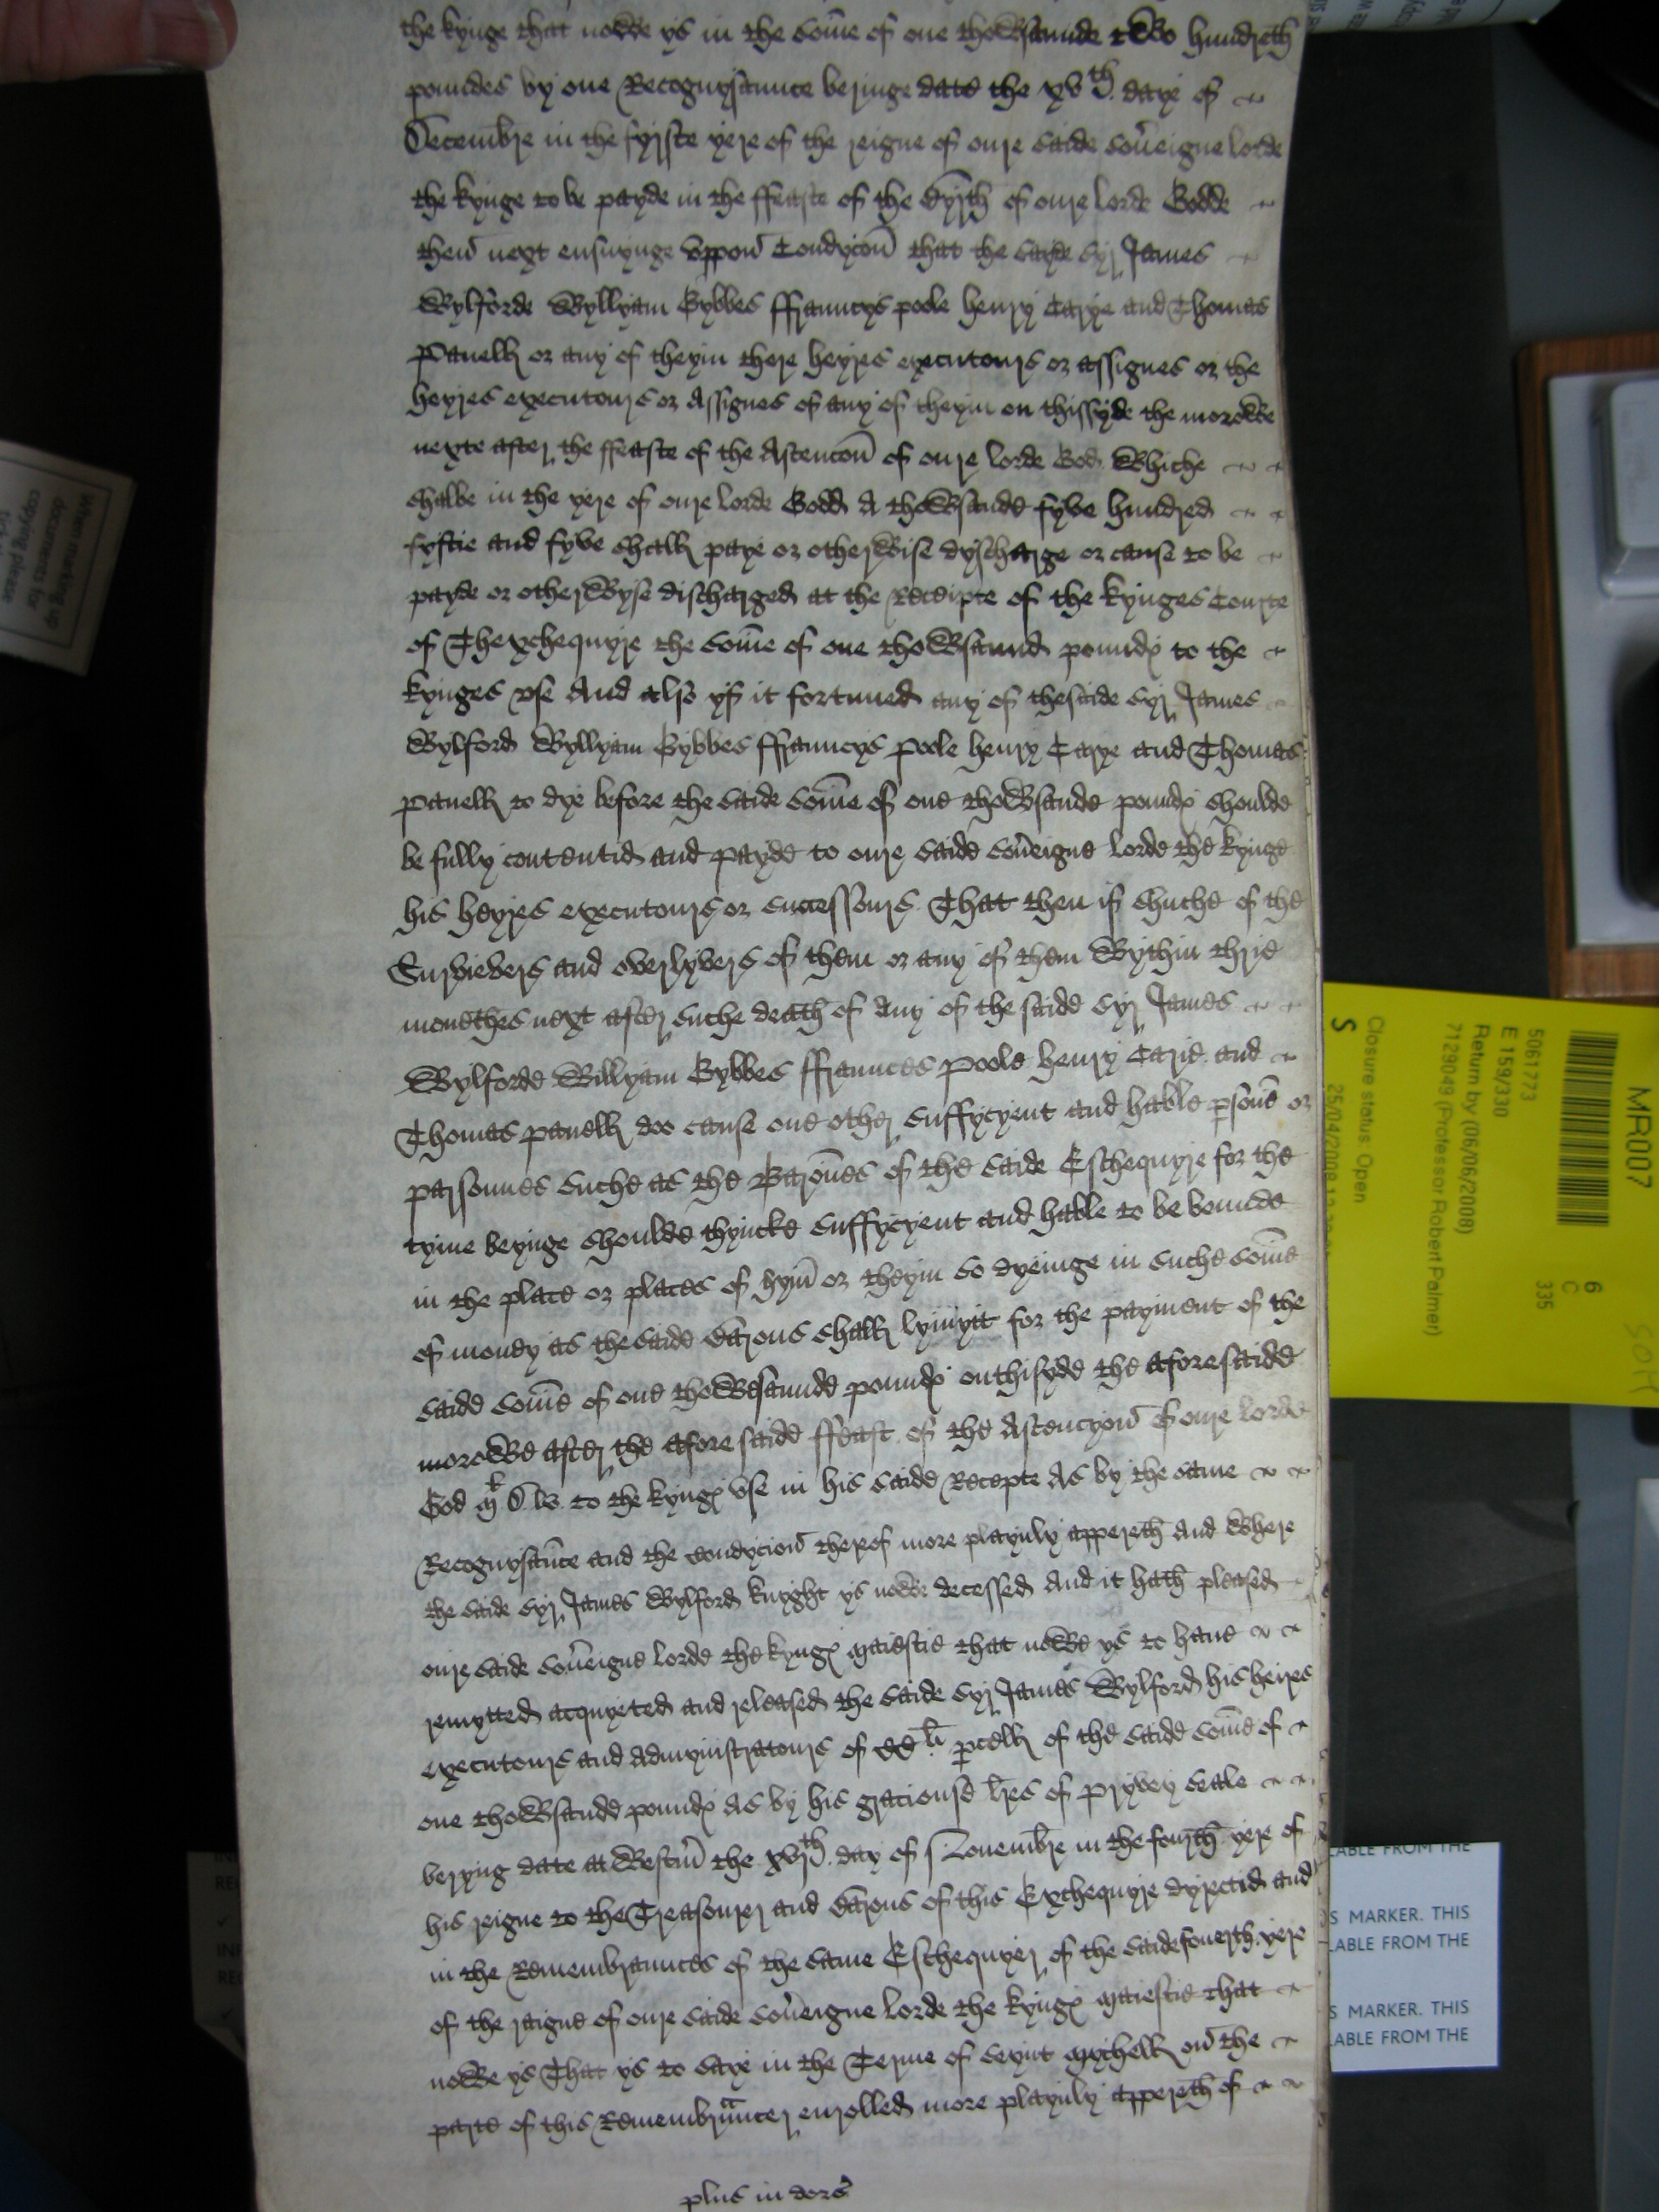 the kynge that nowe ys in the som̄e of one thowsaunde two hundreth
poundes by one Recognysaunce beringe date the xvth daye of
Decembre in the fyrste yere of the reigne of oure saide sov̄eigne lorde
the kynge to be payde in the ffeaste of the Byrth of oure lorde Godde
then̄ next ensuynge vppon̄ Condycon̄ that the saide Syr James
Wylforde Wyllyam Gybbes ffrauncys poole henry Carye and Thomas
Panell or any of theym there heyres executours or assignes or the
heyres executours or Assignes of any of theym on thissyde the morowe
nexte after the ffeaste of the Ascencon̄ of oure lorde God Whiche
shalbe in the yere of oure lorde Godd A thowsande fyve hundred
fyftie and fyve shall paye or otherwise dyscharge or cause to be
payde or otherwyse discharged at the Receipte of the kynges Courte
of Thexchequyre the som̄e of one thowsaund poundes to the
kynges vse And also yf it fortuned any of thesaide Syr James
Wylford Wyllyam Gybbes ffrauncys poole henry Carye and Thomas
panell to dye before the saide som̄e of one thowsande poundes shoulde
be fully contentid and payde to oure saide sov̄eigne lorde the kynge
his heyres executours or successours That then if suche of the
Survievers and overlyvers of them or any of them Wythin thrie
monethes next after suche death of any of the saide Syr James
Wylforde Willyam Gybbes ffraunces poole henry Carie and
Thomas panell doo cause one other suffycyent and hable p̱sone or
parsonnes suche as the Barones of the saide Eschequyre for the
tyme beynge shoulde thyncke suffycyent and hable to be bounde
in the place or places of hym̄ or theym so dyeinge in suche som̄e
of money as the saide Barons shall lymytt for the payment of the
saide som̄e of one thowesaunde poundes onthisyde the aforesaide
morowe after the afore saide ffeast of the Ascencyon̄ of oure lorde
God M D lv to the kynges vse in his saide Recepte As by the same
Recognysaūce and the condycion̄ therof more playnly appereth And Where
the saide Syr James Wylford knyght ys nowe decessed And it hath pleased
oure saide sov̄eigne lorde the kynges Maiestie that nowe ys to haue
remytted acquyeted and released the saide Syr James Wylford his heires
executours and Admynistratours of CC li p̱cell of the saide som̄e of
one thowsande poundes As by his graciouse l̄res of pryvey Seale
beryng date at Westm̄ the xvjth day of Novembre in the fourth yere of
his reigne to the Treasourer and Barons of this Exchequyre dyrectid and
in the Remembraunces of the same Eschequyer of the saide fouerth yere
of the raigne of oure saide sov̄eigne lorde the kynges Maiestie that
nowe ys That ys to saye in the Terme of Seynt Mychell on̄ the
parte of this Remembrauncer enrolled more playnly appereth of
plus in dors̄
MR007
5061773
E 159/330
Return by (06/06/2008)
7129049 (Professor Robert Palmer)
Closure status: Open
S
25/04/2008
6
C
335
When marking up
documents for
copying please
S MARKER. THIS
LABLE FROM THE
S MARKER. THIS
LABLE FROM THE